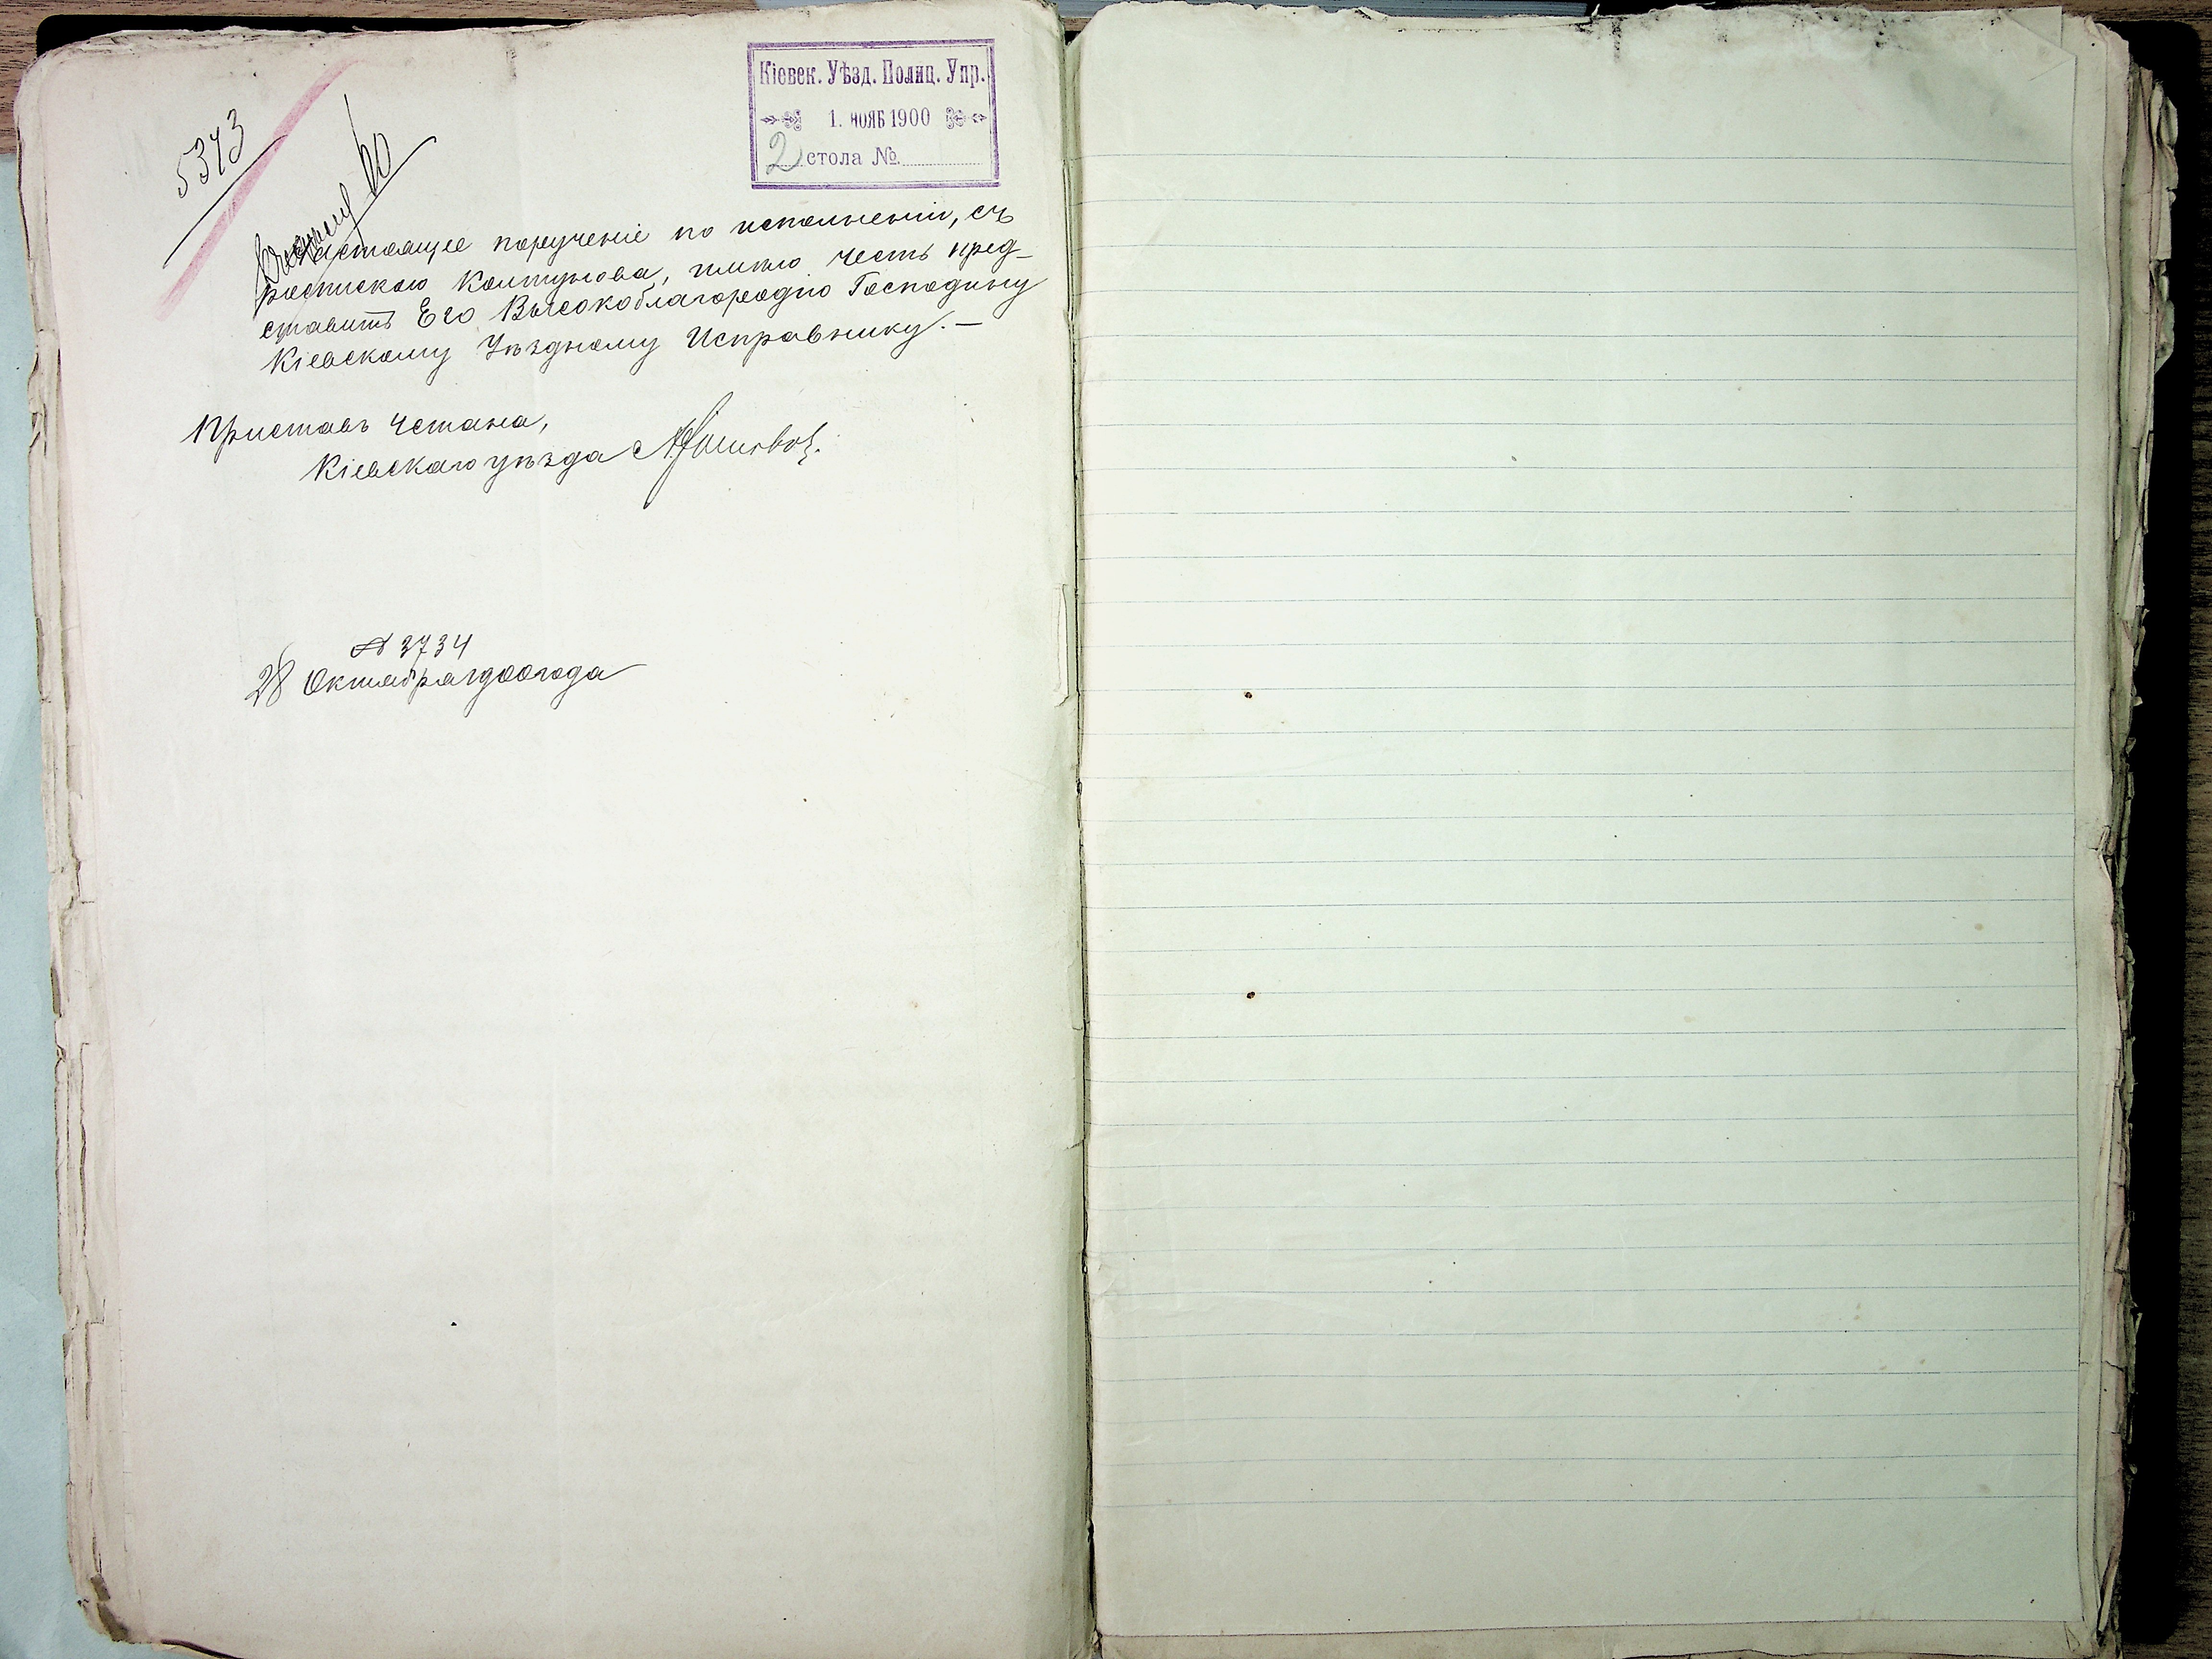 Кіевск. Уѣзд. Полиц. Упр.
1. НОЯБ 1900
2 стола №
5343
Настоящее порученіе по исполненіи, съ
роспискою Колтунова, имѣю честь пред-
ставить Его Высокоблагородію Господину
Кіевскому Уѣздному Исправнику.-
Приставъ 4 стана,
Кіевскаго уѣзда
№ 3734
28 Октября 1900 года